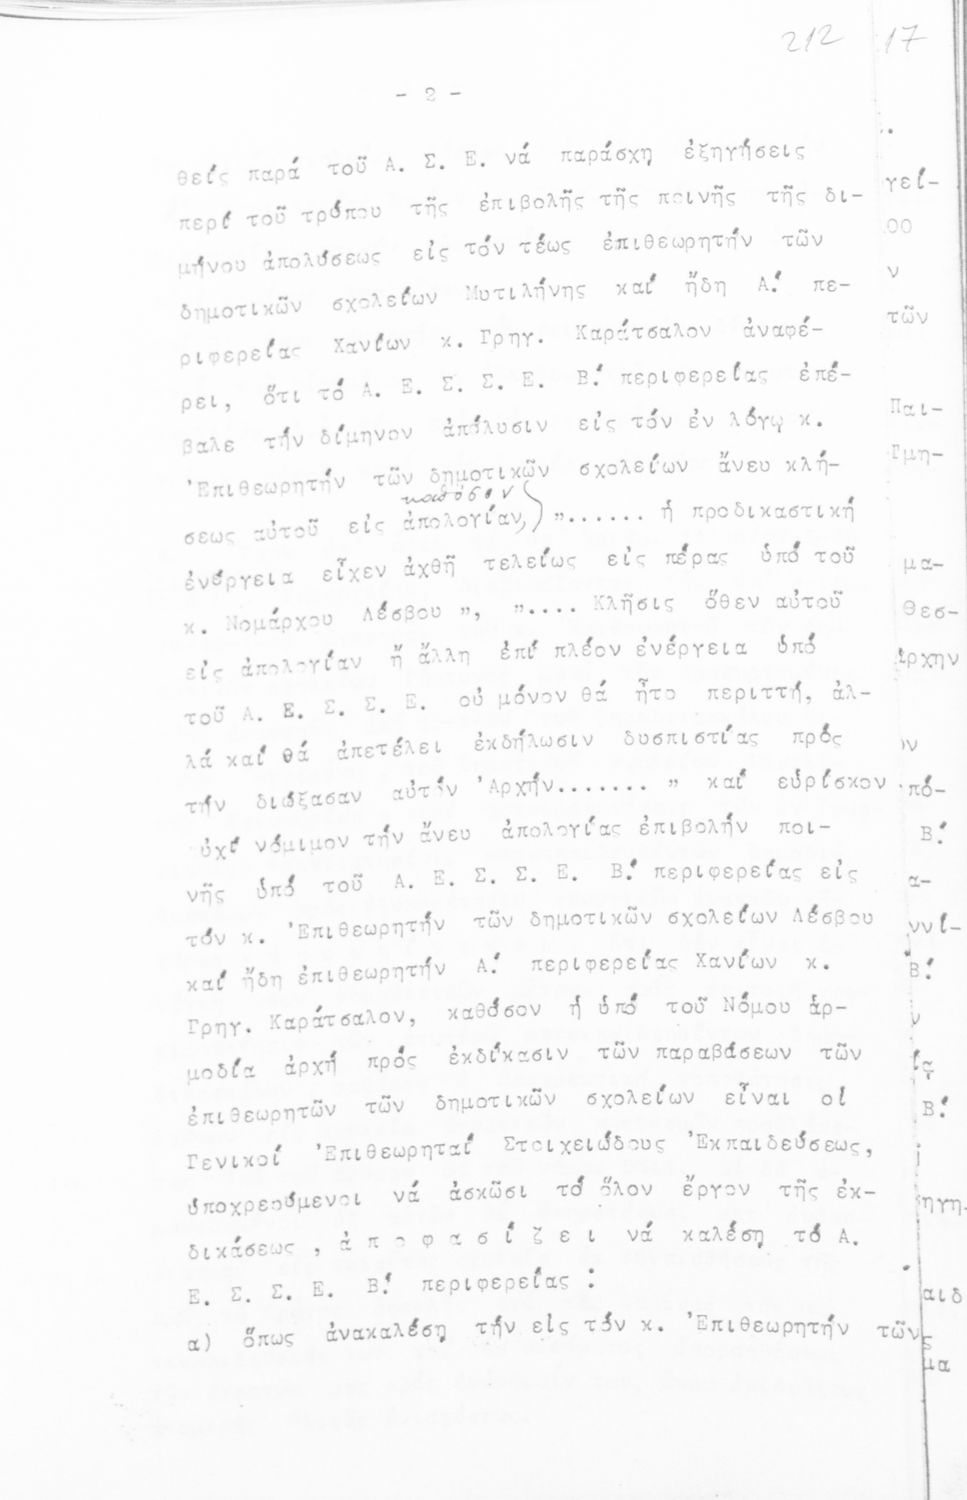 212 17
- 2 -
θείς παρά τοῦ Α. Σ. Ε. νά παράσχῃ ἐξηγήσεις
περί τοῦ τρόπου τῆς ἐπιβολῆς τῆς ποινῆς τῆς δι-
μήνου ἀπολύσεως εἰς τόν τέως ἐπιθεωρητήν τῶν
δημοτικῶν σχολείων Μυτιλήνης καί ἤδη Α.′ πε-
ριφερείας Χανίων κ. Γρηγ. Καράτσαλον ἀναφέ-
ρει, ὅτι τό Α. Ε. Σ. Σ. Ε. Β.′ περιφερείας ἐπέ-
βαλε τήν δίμηνον ἀπόλυσιν εἰς τόν ἐν λόγῳ κ.
Ἐπιθεωρητήν τῶν δημοτικῶν σχολείων ἄνευ κλή-
καθόσον
σεως αὐτοῦ εἰς ἀπολογίαν, „...... ἡ προδικαστική
ἐνέργεια εἶχεν ἀχθῆ τελείως εἰς πέρας ὑπό τοῦ
κ. Νομάρχου Λέσβου „, „.... Κλῆσις ὅθεν αὐτοῦ
εἰς ἀπολογίαν ἤ ἄλλη ἐπί πλέον ἐνέργεια ὑπό
τοῦ Α. Ε. Σ. Σ. Ε. οὐ μόνον θά ἦτο περιττή, ἀλ-
λά καί θά ἀπετέλει ἐκδήλωσιν δυσπιστίας πρός
τήν διώξασαν αὐτόν Ἀρχήν....... „ καί εὑρίσκον
οὐχί νόμιμον τήν ἄνευ ἀπολογίας ἐπιβολήν ποι-
νῆς ὑπό τοῦ Α. Ε. Σ. Σ. Ε. Β.′ περιφερείας εἰς
τόν κ. Ἐπιθεωρητήν τῶν δημοτικῶν σχολείων Λέσβου
καί ἤδη ἐπιθεωρητήν Α.′ περιφερείας Χανίων κ.
Γρηγ. Καράτσαλον, καθόσον ἡ ὑπό τοῦ Νόμου ἁρ-
μοδία ἀρχή πρός ἐκδίκασιν τῶν παραβάσεων τῶν
ἐπιθεωρητῶν τῶν δημοτικῶν σχολείων εἶναι οἱ
Γενικοί Ἐπιθεωρηταί Στοιχειώδους Ἐκπαιδεύσεως,
ὑποχρεούμενοι νά ἀσκῶσι τό ὅλον ἔργον τῆς ἐκ-
δικάσεως , ἀ π ο φ α σ ί ζ ε ι νά καλέσῃ τό Α.
Ε. Σ. Σ. Ε. Β.′ περιφερείας :
α) ὅπως ἀνακαλέσῃ τήν εἰς τόν κ. Ἐπιθεωρητήν τῶν
γεί-
.00
ν
τῶν
Παι-
Τμη-
μα-
θεσ-
Ἀρχην
ον
πό-
Β.′
α-
ννί-
Β.′
ν
ίᾳ
Β.′
ηγη.
αιδ
ς
μα